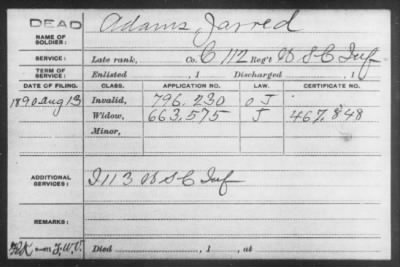 DEAD
NAME OF SOLDIER: Adams, Jarred
SERVICE: Late rank, Co. C 112 Reg't U S C Inf
TERM OF SERVICE: Enlisted , 1 Discharged , 1
DATE OF FILING. CLASS. APPLICATION NO. LAW. CERTIFICATE NO.
1890 Aug 13 Invalid, 796.230 J
Widow, 663.575 J 467.848
Minor,
ADDITIONAL SERVICES: I 113 U S C Inf
REMARKS:
Died , 1 , at